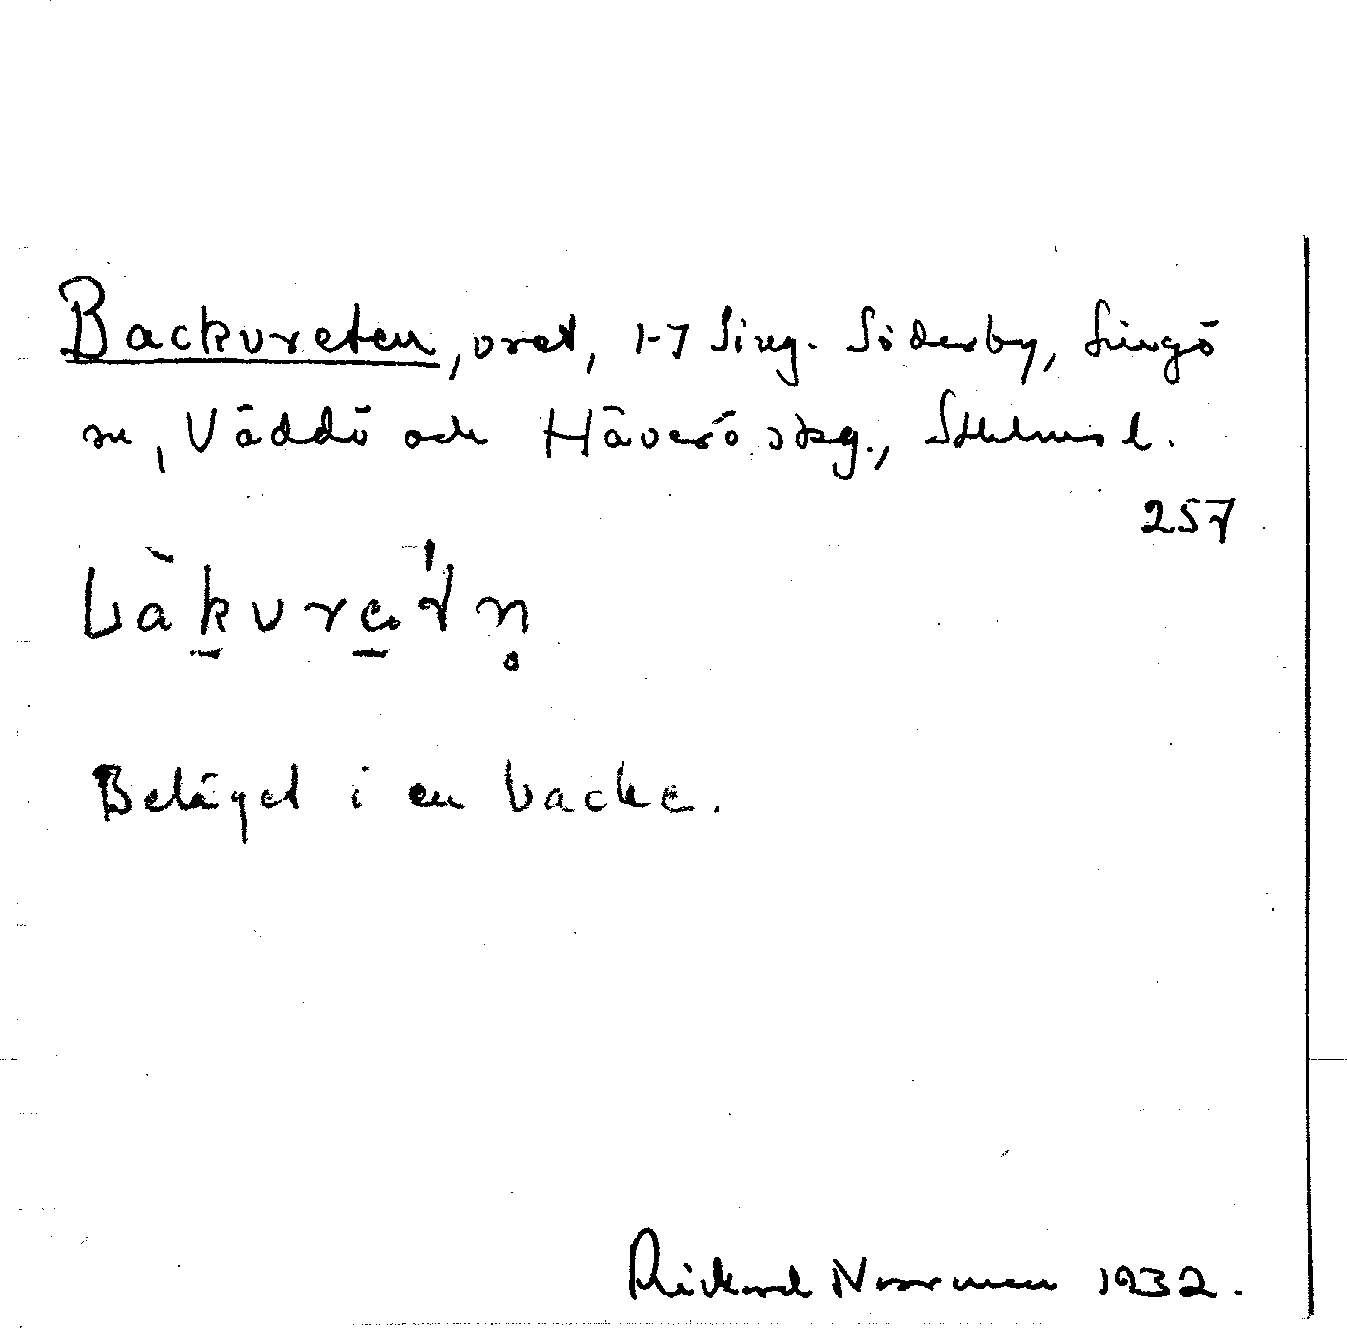 Backvreten, vret, 1-7 Sing. Söderby, Singö
sn, Väddö och Häverö skg., Sthlms l.
257
bàk̠vre̠t'n̥
Beläget i en backe.
Rickard Norrman 1932.